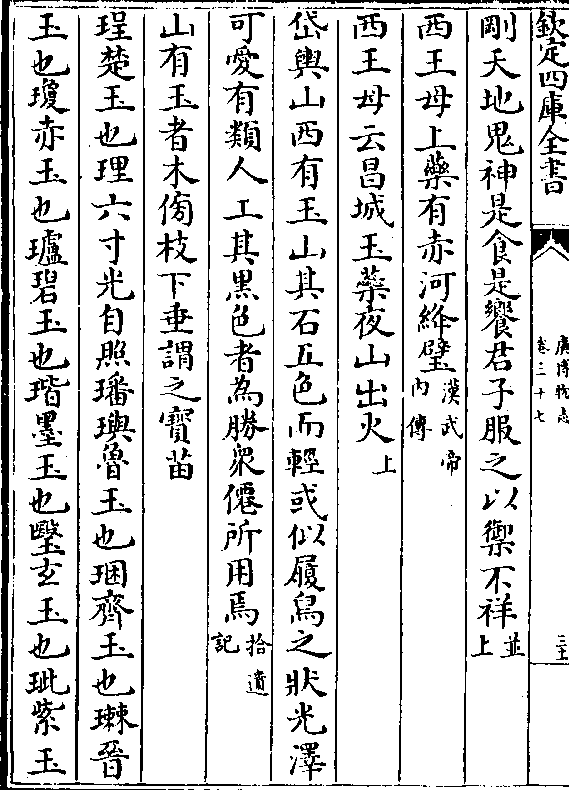 欽定四庫全書
廣博物志
卷三十七
剛天地鬼神是食是饗君子服之以禦不祥並上
西王母上藥有赤河絳璧漢武帝內傳
西王母云昌城玉蘂夜山出火上
岱輿山西有玉山其石五色而輕或似履舄之狀光澤
可愛有類人工其黑色者為勝衆僊所用焉拾遺記
山有玉者木傍枝下垂謂之寶苗
珵楚玉也理六寸光自照璠璵魯玉也琯齊玉也璓晉
玉也瓊赤玉也瓐碧玉也瑎墨玉也瑿玄玉也玼紫玉